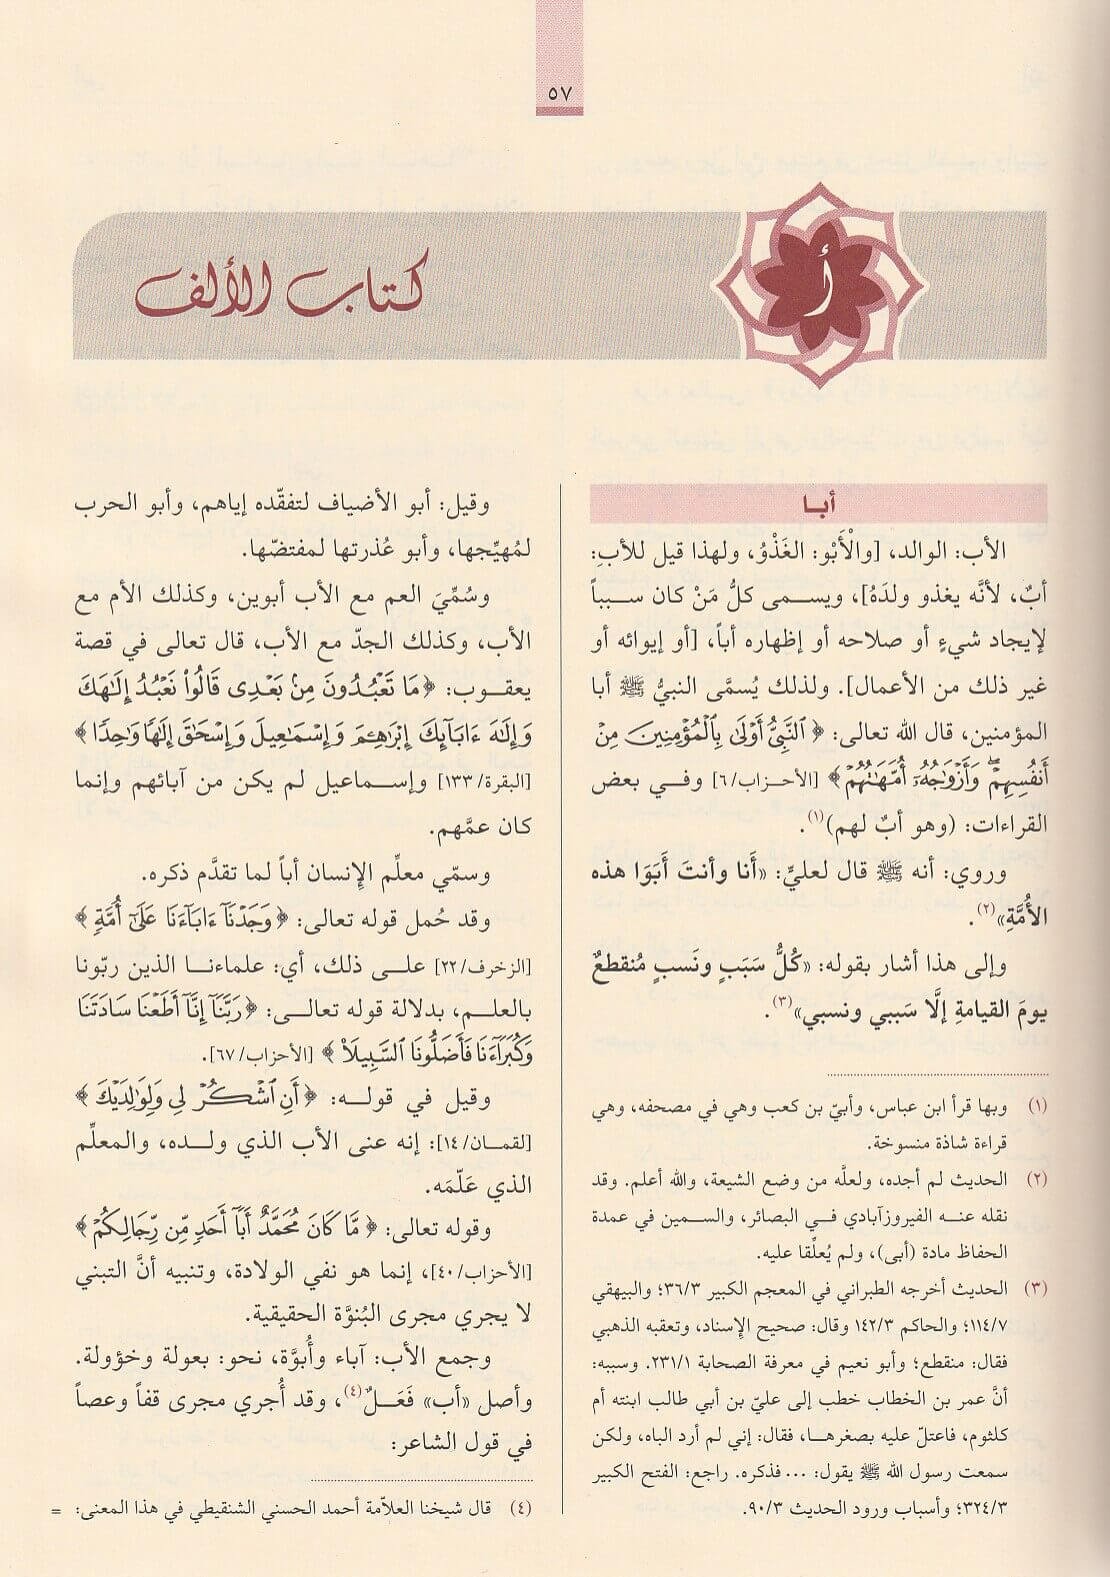 ٥٧
أ
كتاب الألف
أبا
الأب: الوالد، [والْأَبْو: الغَذْوُ، ولهذا قيل للأبِ:
أبٌ، لأنَّه يغذو ولدَهُ]، ويسمى كلُّ مَنْ كان سبباً
لإيجاد شيءٍ أو صلاحه أو إظهاره أباً، [أو إيوائه أو
غير ذلك من الأعمال]. ولذلك يُسمَّى النبيُّ ﷺ أبا
المؤمنين، قال الله تعالى: ﴿ ٱلنَّبِىُّ أَوْلَىٰ بِٱلْمُؤْمِنِينَ مِنْ
أَنفُسِهِمْ ۖ وَأَزْوَٰجُهُۥٓ أُمَّهَٰتُهُمْ ﴾ [الأحزاب/٦] وفي بعض
القراءات: (وهو أبٌ لهم)(١).
وروي: أنه ﷺ قال لعليٍّ: «أَنا وأنتَ أَبَوَا هذه
الأُمَّةِ»(٢).
وإلى هذا أشار بقوله: «كُلُّ سَبَبٍ ونَسبٍ مُنقطعٌ
يومَ القيامةِ إلَّا سَببي ونسبي»(٣).
(١) وبها قرأ ابن عباس، وأبيّ بن كعب وهي في مصحفه، وهي
قراءة شاذة منسوخة.
(٢) الحديث لم أجده، ولعلَّه من وضع الشيعة، والله أعلم. وقد
نقله عنه الفيروزآبادي في البصائر، والسمين في عمدة
الحفاظ مادة (أبى)، ولم يُعلِّقا عليه.
(٣) الحديث أخرجه الطبراني في المعجم الكبير ٣٦/٣؛ والبيهقي
١١٤/٧؛ والحاكم ١٤٢/٣ وقال: صحيح الإسناد، وتعقبه الذهبي
فقال: منقطع؛ وأبو نعيم في معرفة الصحابة ٢٣١/١. وسببه:
أنَّ عمر بن الخطاب خطب إلى عليّ بن أبي طالب ابنته أم
كلثوم، فاعتلّ عليه بصغرها، فقال: إني لم أرد الباه، ولكن
سمعت رسول الله ﷺ يقول: ... فذكره. راجع: الفتح الكبير
٣٢٤/٣؛ وأسباب ورود الحديث ٩٠/٣.
وقيل: أبو الأضياف لتفقّده إياهم، وأبو الحرب
لمُهيِّجها، وأبو عُذرتها لمفتضّها.
وسُمِّيَ العم مع الأب أبوين، وكذلك الأم مع
الأب، وكذلك الجدّ مع الأب، قال تعالى في قصة
يعقوب: ﴿ مَا تَعْبُدُونَ مِنۢ بَعْدِى قَالُوا۟ نَعْبُدُ إِلَٰهَكَ
وَإِلَٰهَ ءَابَآئِكَ إِبْرَٰهِـۧمَ وَإِسْمَٰعِيلَ وَإِسْحَٰقَ إِلَٰهًا وَٰحِدًا ﴾
[البقرة/١٣٣] وإسماعيل لم يكن من آبائهم وإنما
كان عمَّهم.
وسمّي معلِّم الإنسان أباً لما تقدَّم ذكره.
وقد حُمل قوله تعالى: ﴿ وَجَدْنَآ ءَابَآءَنَا عَلَىٰٓ أُمَّةٍ ﴾
[الزخرف/٢٢] على ذلك، أي: علماءنا الذين ربّونا
بالعلم، بدلالة قوله تعالى: ﴿ رَبَّنَآ إِنَّآ أَطَعْنَا سَادَتَنَا
وَكُبَرَآءَنَا فَأَضَلُّونَا ٱلسَّبِيلَا۠ ﴾ [الأحزاب/٦٧].
وقيل في قوله: ﴿ أَنِ ٱشْكُرْ لِى وَلِوَٰلِدَيْكَ ﴾
[لقمان/١٤]: إنه عنى الأب الذي ولده، والمعلِّم
الذي عَلّمَه.
وقوله تعالى: ﴿ مَّا كَانَ مُحَمَّدٌ أَبَآ أَحَدٍ مِّن رِّجَالِكُمْ ﴾
[الأحزاب/٤٠]، إنما هو نفي الولادة، وتنبيه أنَّ التبني
لا يجري مجرى البُنوَّة الحقيقية.
وجمع الأب: آباء وأُبوَّة، نحو: بعولة وخؤولة.
وأصل «أب» فَعَلٌ(٤)، وقد أُجري مجرى قفاً وعصاً
في قول الشاعر:
(٤) قال شيخنا العلاّمة أحمد الحسني الشنقيطي في هذا المعنى: =